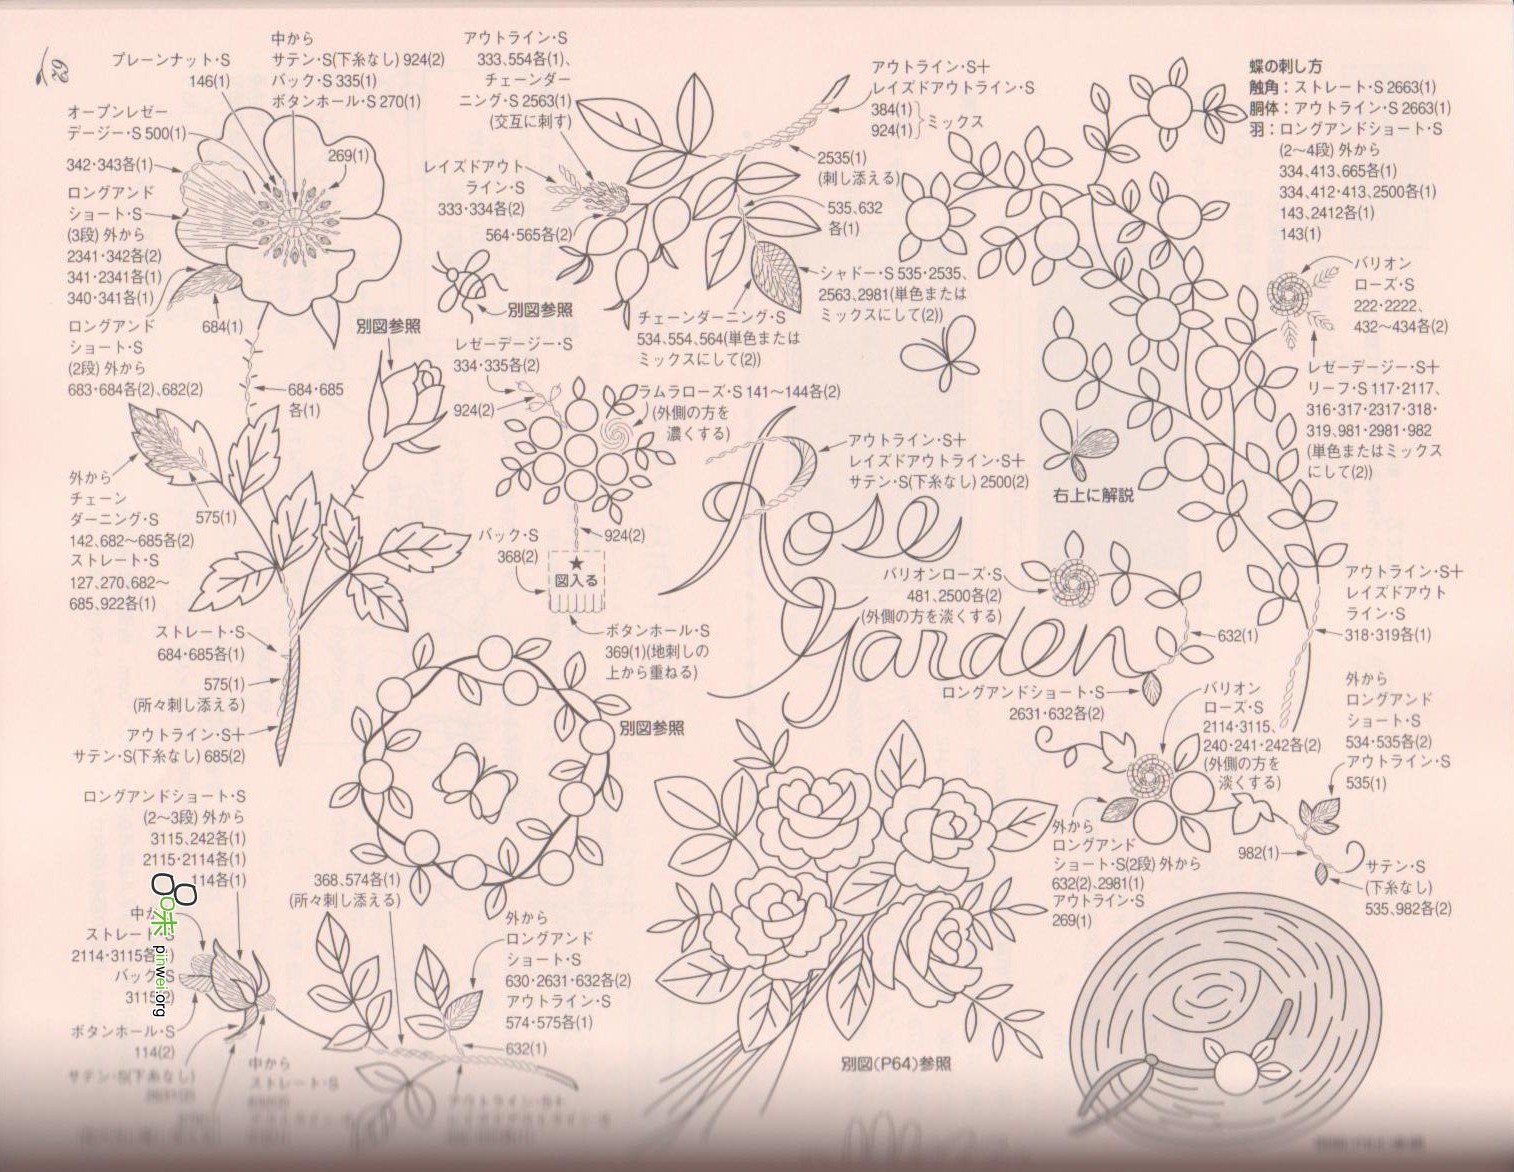 62
プレーンナット・S
146(1)
中から
サテン・S(下糸なし) 924(2)
バック・S 335(1)
ボタンホール・S 270(1)
オープンレゼー
デージー・S 500(1)
269(1)
342・343各(1)
ロングアンド
ショート・S
(3段) 外から
2341・342各(2)
341・2341各(1)
340・341各(1)
ロングアンド
ショート・S
(2段) 外から
683・684各(2)、682(2)
684(1)
別図参照
684・685
各(1)
外から
チェーン
ダーニング・S
142、682〜685各(2)
ストレート・S
127、270、682〜
685、922各(1)
575(1)
ストレート・S
684・685各(1)
575(1)
(所々刺し添える)
アウトライン・S+
サテン・S(下糸なし) 685(2)
アウトライン・S
333、554各(1)、
チェーンダー
ニング・S 2563(1)
(交互に刺す)
レイズドアウト
ライン・S
333・334各(2)
564・565各(2)
別図参照
アウトライン・S+
レイズドアウトライン・S
384(1)
924(1)
ミックス
2535(1)
(刺し添える)
535、632
各(1)
シャドー・S 535・2535、
2563、2981(単色または
ミックスにして(2))
チェーンダーニング・S
534、554、564(単色または
ミックスにして(2))
レゼーデージー・S
334・335各(2)
924(2)
ラムラローズ・S 141〜144各(2)
(外側の方を
濃くする)
バック・S
368(2)
924(2)
★
図入る
ボタンホール・S
369(1)(地刺しの
上から重ねる)
アウトライン・S+
レイズドアウトライン・S+
サテン・S(下糸なし) 2500(2)
Rose
Garden
蝶の刺し方
触角：ストレート・S 2663(1)
胴体：アウトライン・S 2663(1)
羽：ロングアンドショート・S
(2〜4段) 外から
334、413、665各(1)
334、412・413、2500各(1)
143、2412各(1)
143(1)
バリオン
ローズ・S
222・2222、
432〜434各(2)
レゼーデージー・S+
リーフ・S 117・2117、
316・317・2317・318・
319、981・2981・982
(単色またはミックス
にして(2))
右上に解説
バリオンローズ・S
481、2500各(2)
(外側の方を淡くする)
632(1)
ロングアンドショート・S
2631・632各(2)
アウトライン・S+
レイズドアウト
ライン・S
318・319各(1)
別図参照
バリオン
ローズ・S
2114・3115、
240・241・242各(2)
(外側の方を
淡くする)
外から
ロングアンド
ショート・S
534・535各(2)
アウトライン・S
535(1)
外から
ロングアンド
ショート・S(2段) 外から
632(2)、2981(1)
アウトライン・S
269(1)
982(1)
サテン・S
(下糸なし)
535、982各(2)
ロングアンドショート・S
(2〜3段) 外から
3115、242各(1)
2115・2114各(1)
114各(1)
中か
ストレート・S
2114・3115各
バック・S
3115(2)
ボタンホール・S
114(2)
サテン・S(下糸なし)
中から
ストレート・S
368、574各(1)
(所々刺し添える)
外から
ロングアンド
ショート・S
630・2631・632各(2)
アウトライン・S
574・575各(1)
632(1)
別図(P64)参照
米 pinwei.org